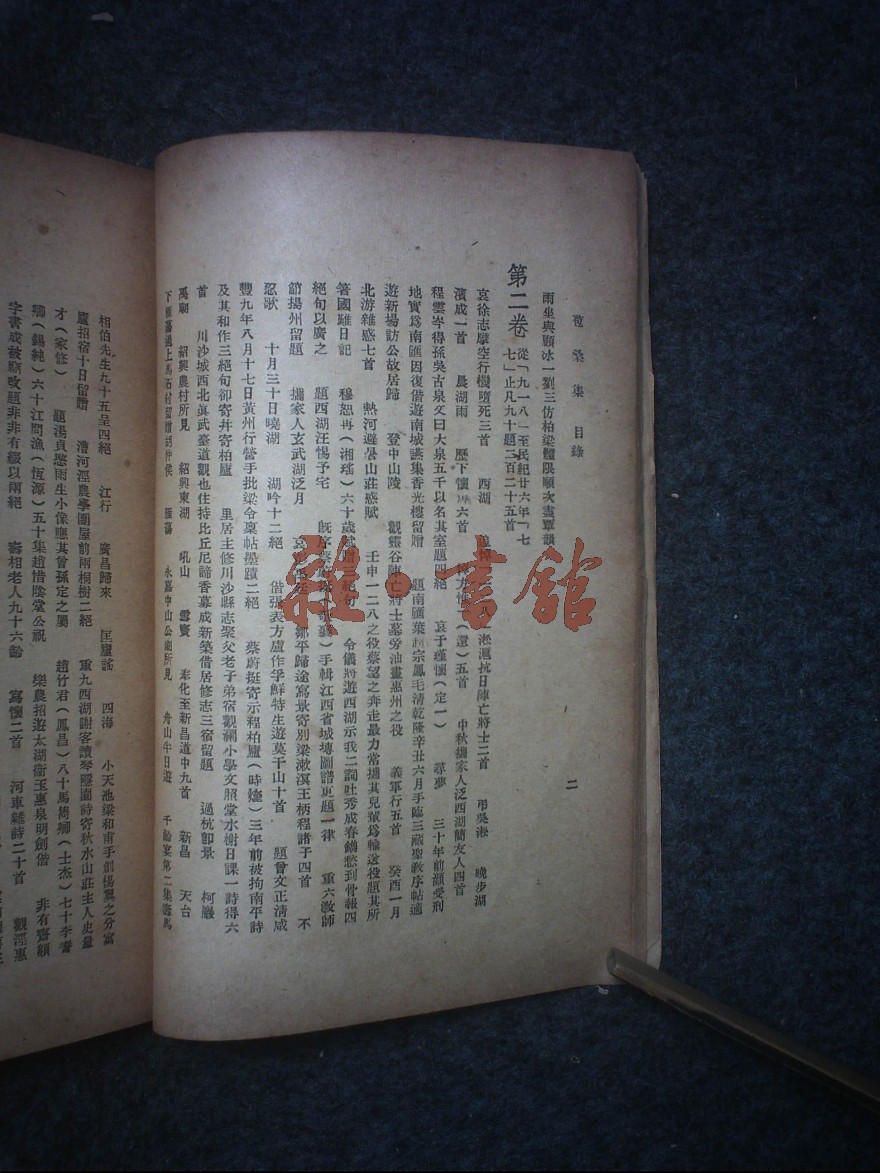 苞桑集 目錄
二
雨坐與顧冰一劉三仿柏梁體限順次盡覃韻
第二卷 從「九一八」至民紀廿六年「七七」止凡九十題二百二十五首
哀徐志摩空行機墮死三首 西湖 淞滬抗日陣亡將士二首 弔吳淞 曉步湖
濱成一首 晨湖雨 歷下懷 六首 (還)五首 中秋攜家人泛西湖簡友人四首
程雲岑得孫吳古泉文曰大泉五千以名其室題四絕 哀于瑾懷(定一) 尋夢 三十年前顧受刑
地實爲南匯因復偕遊南城讌集香光樓留贈 題南匯葉 宗鳳毛清乾隆辛丑六月手臨三藏聖敎序帖適
遊新場訪公故居歸 登中山陵 觀靈谷陣亡將士墓勞油畫惠州之役 義軍行五首 癸酉一月
北游雜感七首 熱河避暑山莊感賦 壬申一二八之役蔡望之奔走最力常攜其兒輩爲輸送役題其所
箸國難日記 穆恕再(湘瑤)六十歲 贈二絕句 令儀將遊西湖示我二詞吐秀成春鑄愁到骨報四
絕句以廣之 題西湖汪惕予宅 旣序蔡 手輯江西省城塼圖譜更題一律 重六敎師
節揚州留題 攜家人玄武湖泛月 哀 鄒平歸途寫景寄別梁漱溟王柄程諸子四首 不
忍歌 十月三十日曉湖 湖吟十二絕 借張表方盧作孚鮮特生遊莫干山十首 題曾文正清咸
豐九年八月十七日黃州行營手批梁令稟帖墨蹟二絕 蔡府挺寄示程柏廬(時煃)三年前被拘南平詩
及其和作三絕句卻寄幷寄柏廬 里居主修川沙縣志聚父老子弟宿觀瀾小學文照堂水榭日課一詩得六
首 川沙城西北眞武臺道觀也住持比丘尼諦香募成新築借居修志三宿留題 過杭卽景 柯巖
禹廟 紹興農村所見 紹興東湖 吼山 雪竇 奉化至新昌道中九首 新昌 天台
下 過上馬石村留贈胡仲侯 雁蕩 永嘉中山公廟所見 舟山半日遊 千齡宴第二集壽馬
相伯先生九十五呈四絕 江行 廣昌歸來 匡廬謠 四海 小天池梁和甫手創楊翼之分富
廬招宿十日留贈 漕河涇農學團屋前兩桐樹二絕 重九西湖謝客讀琴隱園詩寄秋水山莊主人史量
才(家修) 題湯貞愍雨生小像應其曾孫定之屬 趙竹君(鳳昌)八十馬雋卿(士杰)七十李耆
卿(錫純)六十江問漁(恆源)五十集趙惜陰堂公祝 樂農招遊太湖衞玉惠泉明劍偕 非有齋額
字書成被竊改題非非有綴以兩絕 壽相老人九十六齡 寫懷二首 河車雜詩二十首 觀涇惠
雜·書館